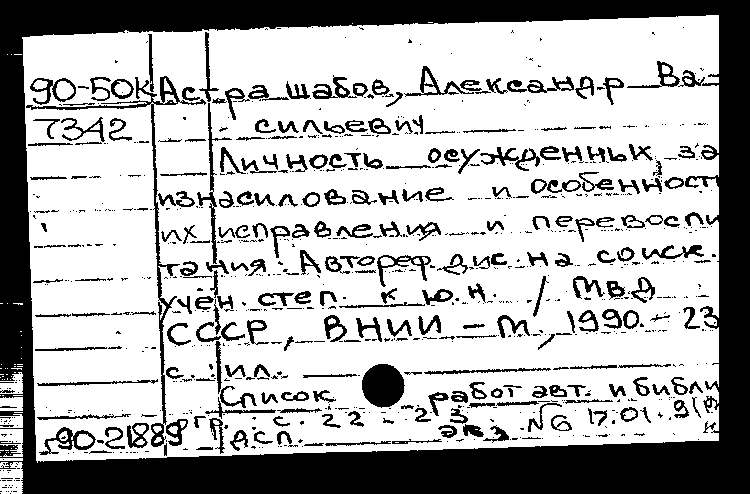 90-50К Астрашабов, Александр Ва-
7342 сильевич
Личность осужденных за
изнасилование и особенност
их исправления и перевоспи
тания: Автореф. дис. на соиск.
учён. степ. к. ю. н. / МВД
СССР, ВНИИ - М., 1990. - 23
с. : ил.
Список работ авт. и библи
гр. : с. 22 - 23
90-21889 АСП. экз. NG 17.01.91